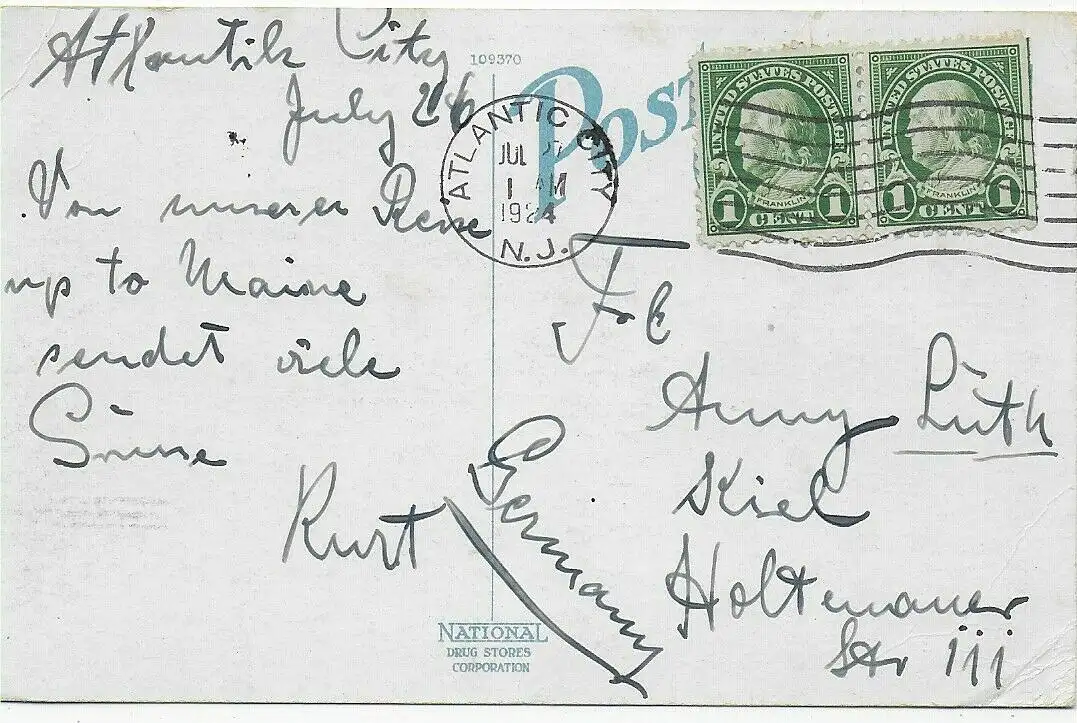 Atlantik City
July 26
Von unserer Reise
up to Maine
sendet viele
Grüsse
Kurt
109370
Post
ATLANTIC CITY
JUL 27
1 AM
1924
N.J.
UNITED STATES POSTAGE
FRANKLIN
1 CENT 1
UNITED STATES POSTAGE
FRANKLIN
1 CENT 1
Anny Lüth
Kiel
Holtenauer
Str 111
Germany
NATIONAL
DRUG STORES
CORPORATION